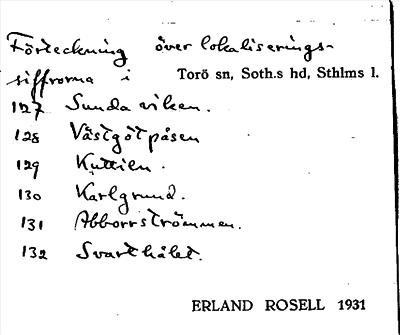 Förteckning över lokaliserings-
siffrorna i Torö sn, Soth.s hd, Sthlms l.
127 Sunda viken.
128 Västgötpåsen
129 Kuttien.
130 Karlgrund.
131 Abborrströmmen.
132 Svarthålet.
ERLAND ROSELL 1931